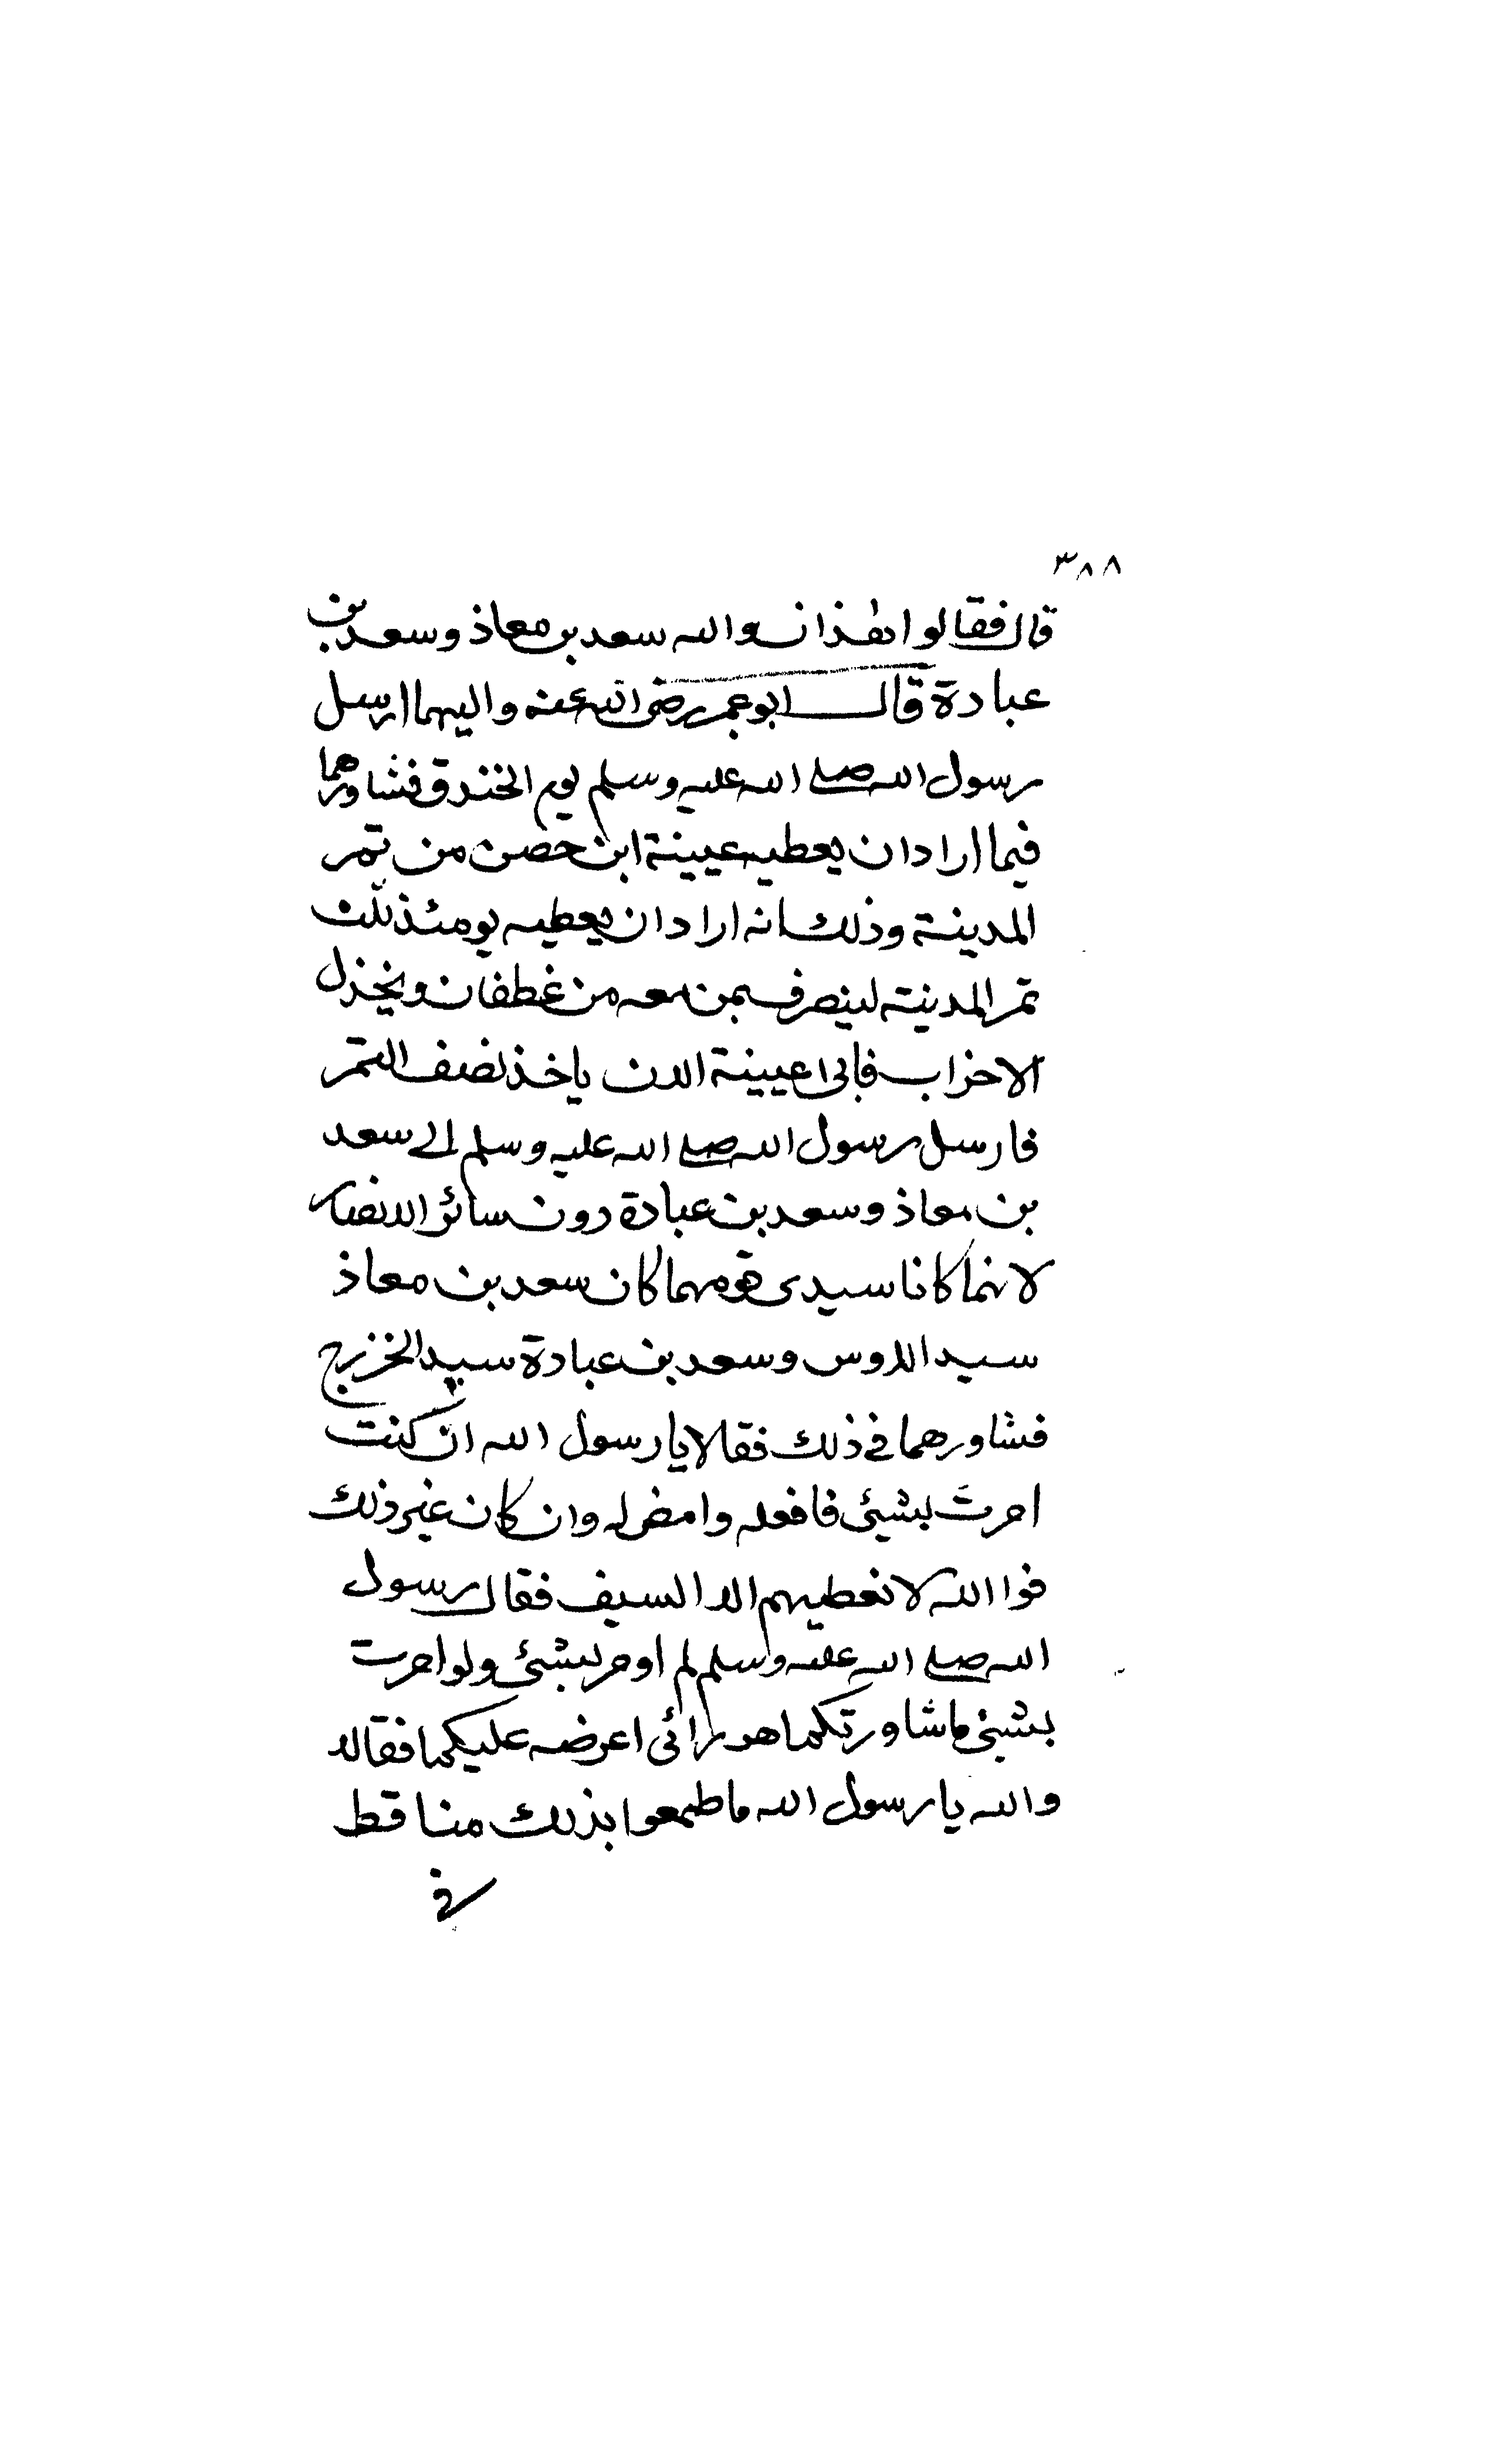 ٣٨٨
قال فقالوا هذان والله سعد بن معاذ وسعد بن
عبادة قال ابو عمر رضى الله عنه واليهما ارسل
رسول الله صلى الله عليه وسلم يوم الخندق فشاورهما
فيما اراد ان يعطيه عيينة ابن حصن من تمر
المدينة وذلك انه اراد ان يعطيه يومئذ ثلث
تمر المدينة لينصرف بمن معه من غطفان ويخذل
الاحزاب فابى عيينة الا ان ياخذ نصف التمر
فارسل رسول الله صلى الله عليه وسلم الى سعد
بن معاذ وسعد بن عبادة دون سائر الانصار
لانهما كانا سيدى قومهما كان سعد بن معاذ
سيد الاوس وسعد بن عبادة سيد الخزرج
فشاورهما في ذلك فقالا يا رسول الله ان كنت
امرت بشيئ فافعله وامض له وان كان غير ذلك
فوا الله لا نعطيهم الا السيف فقال رسول
الله صلى الله عليه وسلم لم اومر بشيئ ولو امرت
بشيئ ما شاورتكما هو رائى اعرضه عليكما فقالا
والله يا رسول الله ما طمعوا بذلك منا قط
في